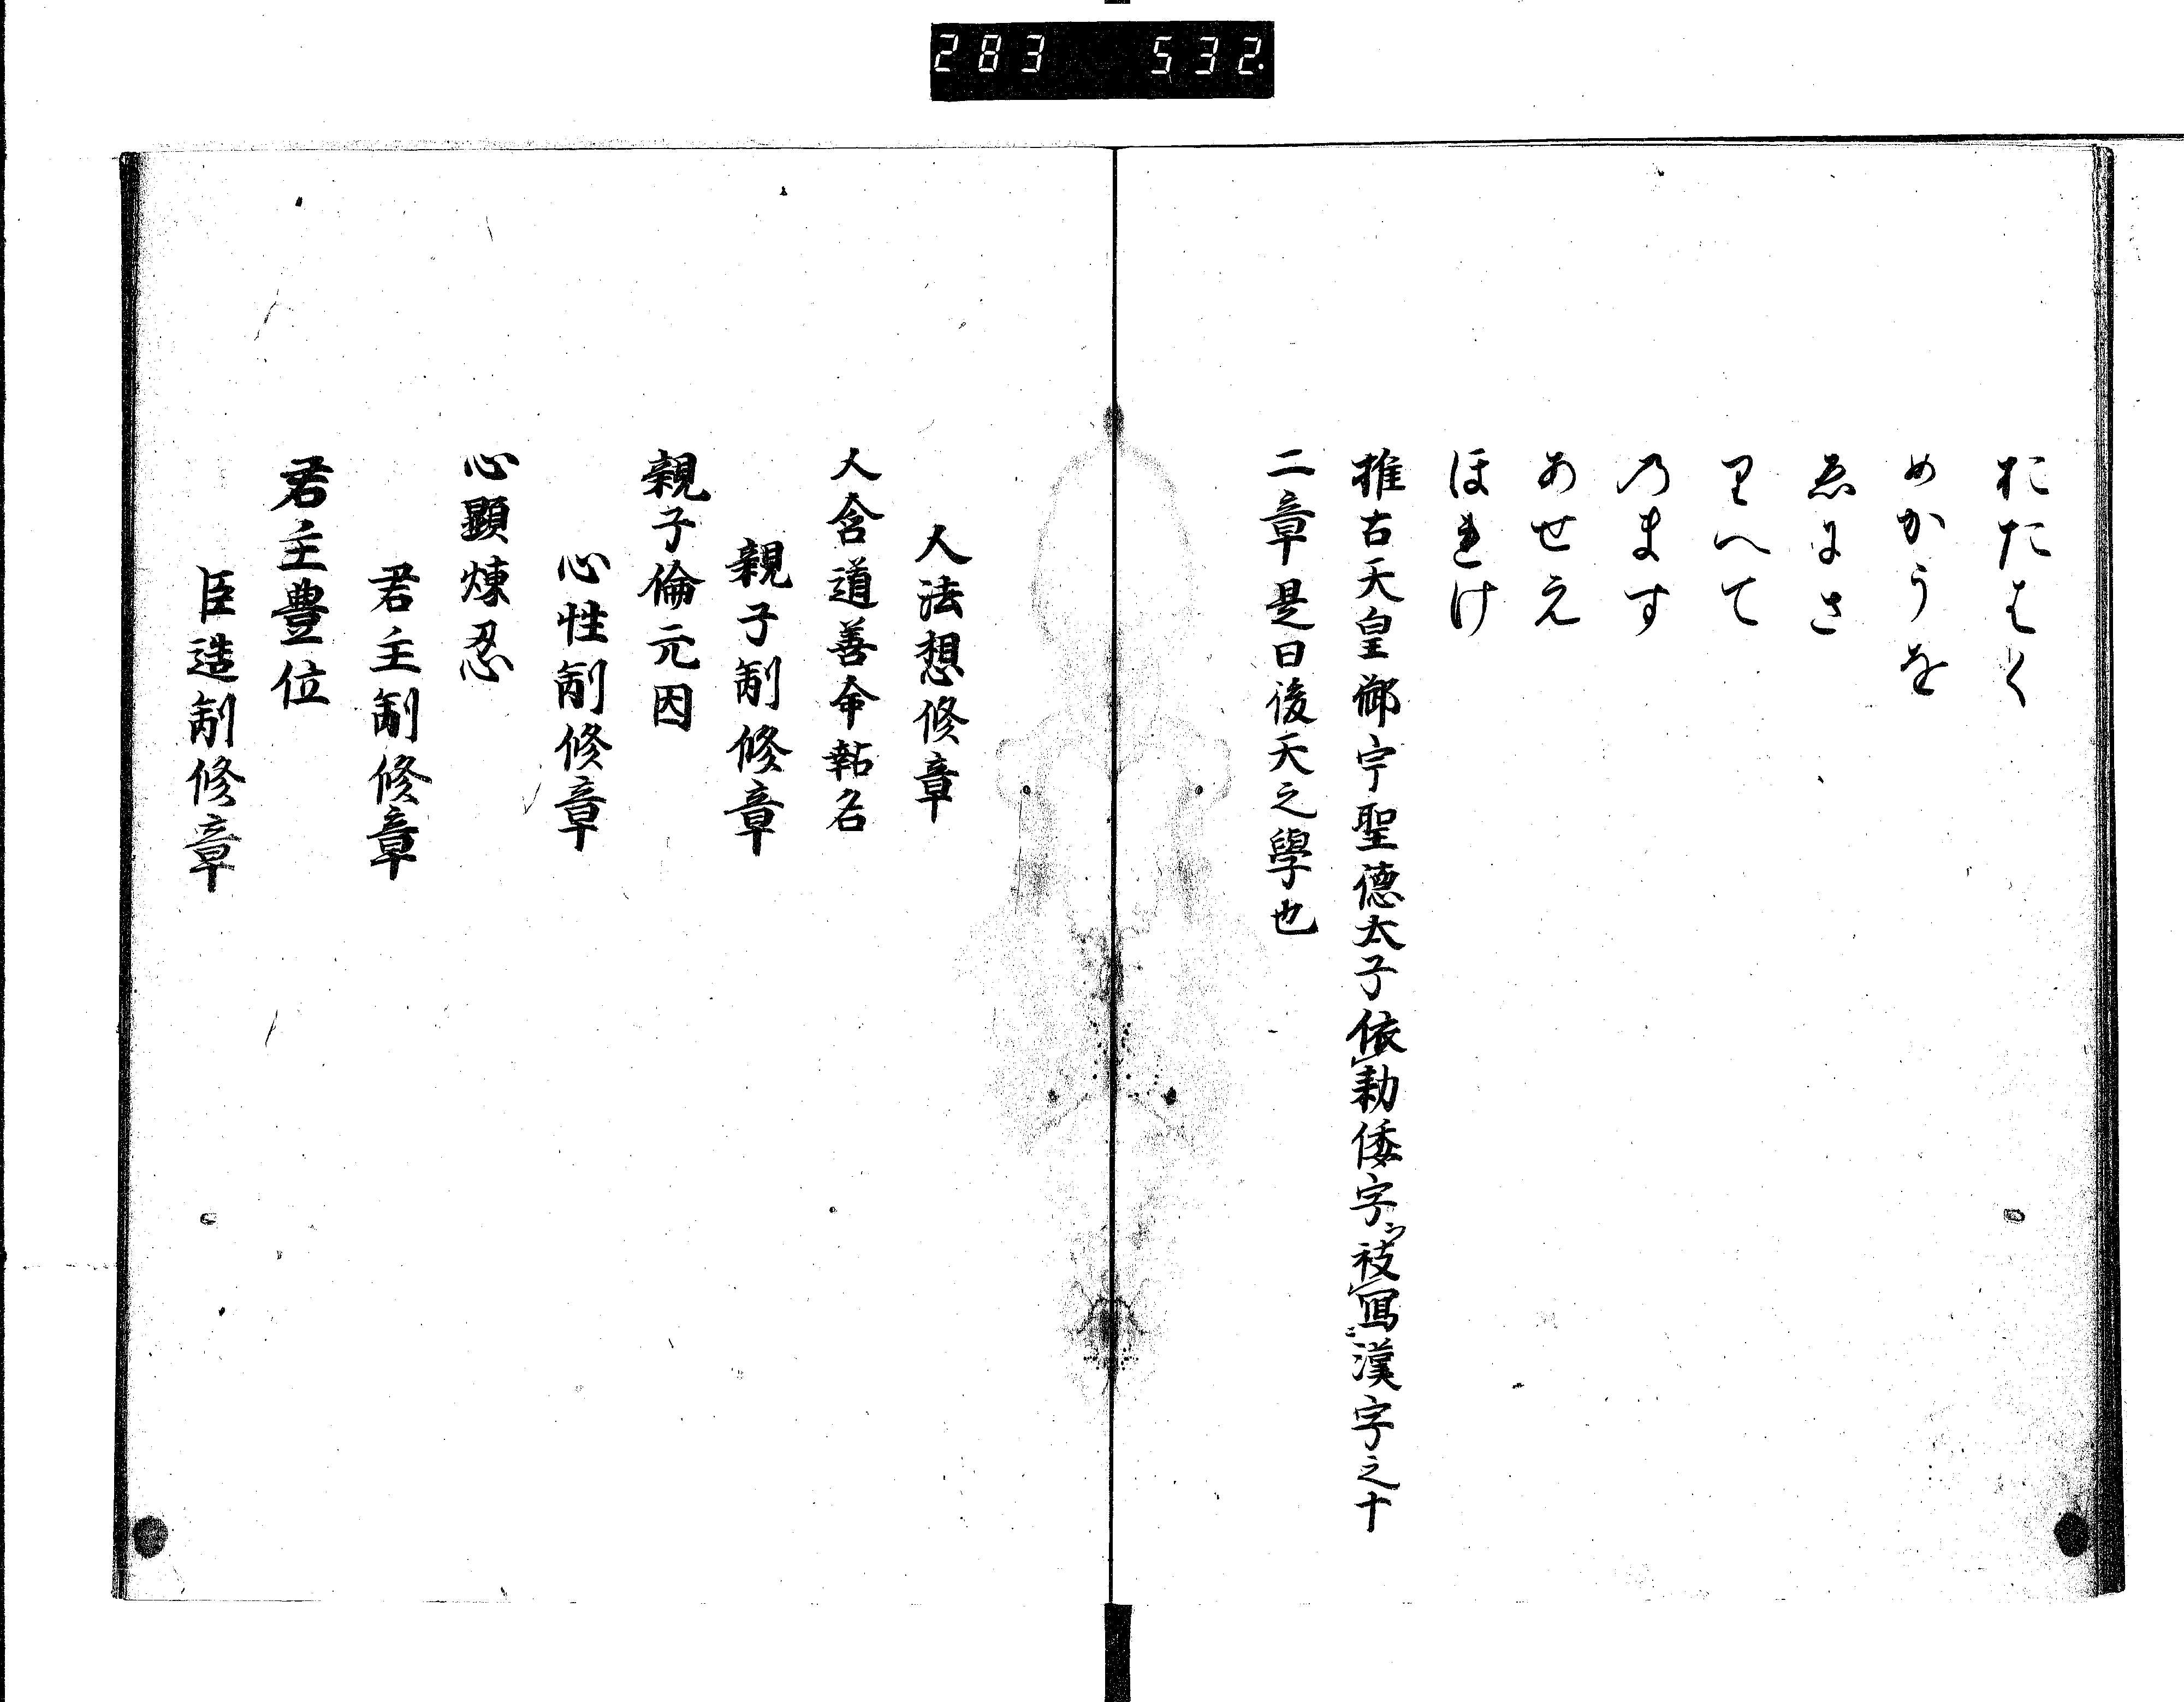 283 532
おたはく
めかうを
ゑにさ
りへて
のます
あせえ
ほれけ
推古天皇御宇聖德太子依勅倭字ヲ被寫ニ漢字之十
二章是曰後天之學也
人法想修章
人含道善命報名
親子制修章
親子倫元因
心性制修章
心顯煉忍
君主制修章
君主豊位
臣造制修章